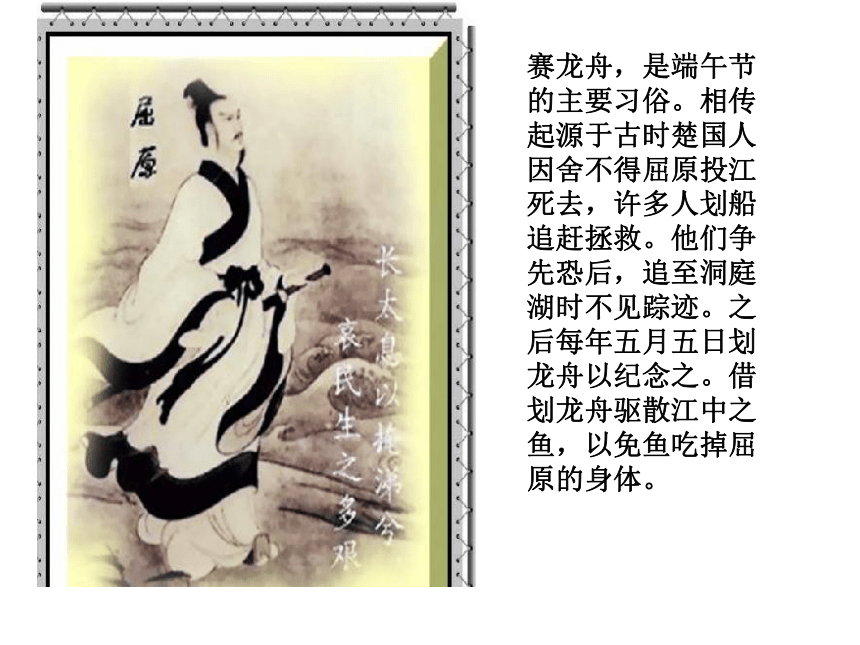 屈原
长太息以掩涕兮
哀民生之多艰
赛龙舟，是端午节
的主要习俗。相传
起源于古时楚国人
因舍不得屈原投江
死去，许多人划船
追赶拯救。他们争
先恐后，追至洞庭
湖时不见踪迹。之
后每年五月五日划
龙舟以纪念之。借
划龙舟驱散江中之
鱼，以免鱼吃掉屈
原的身体。